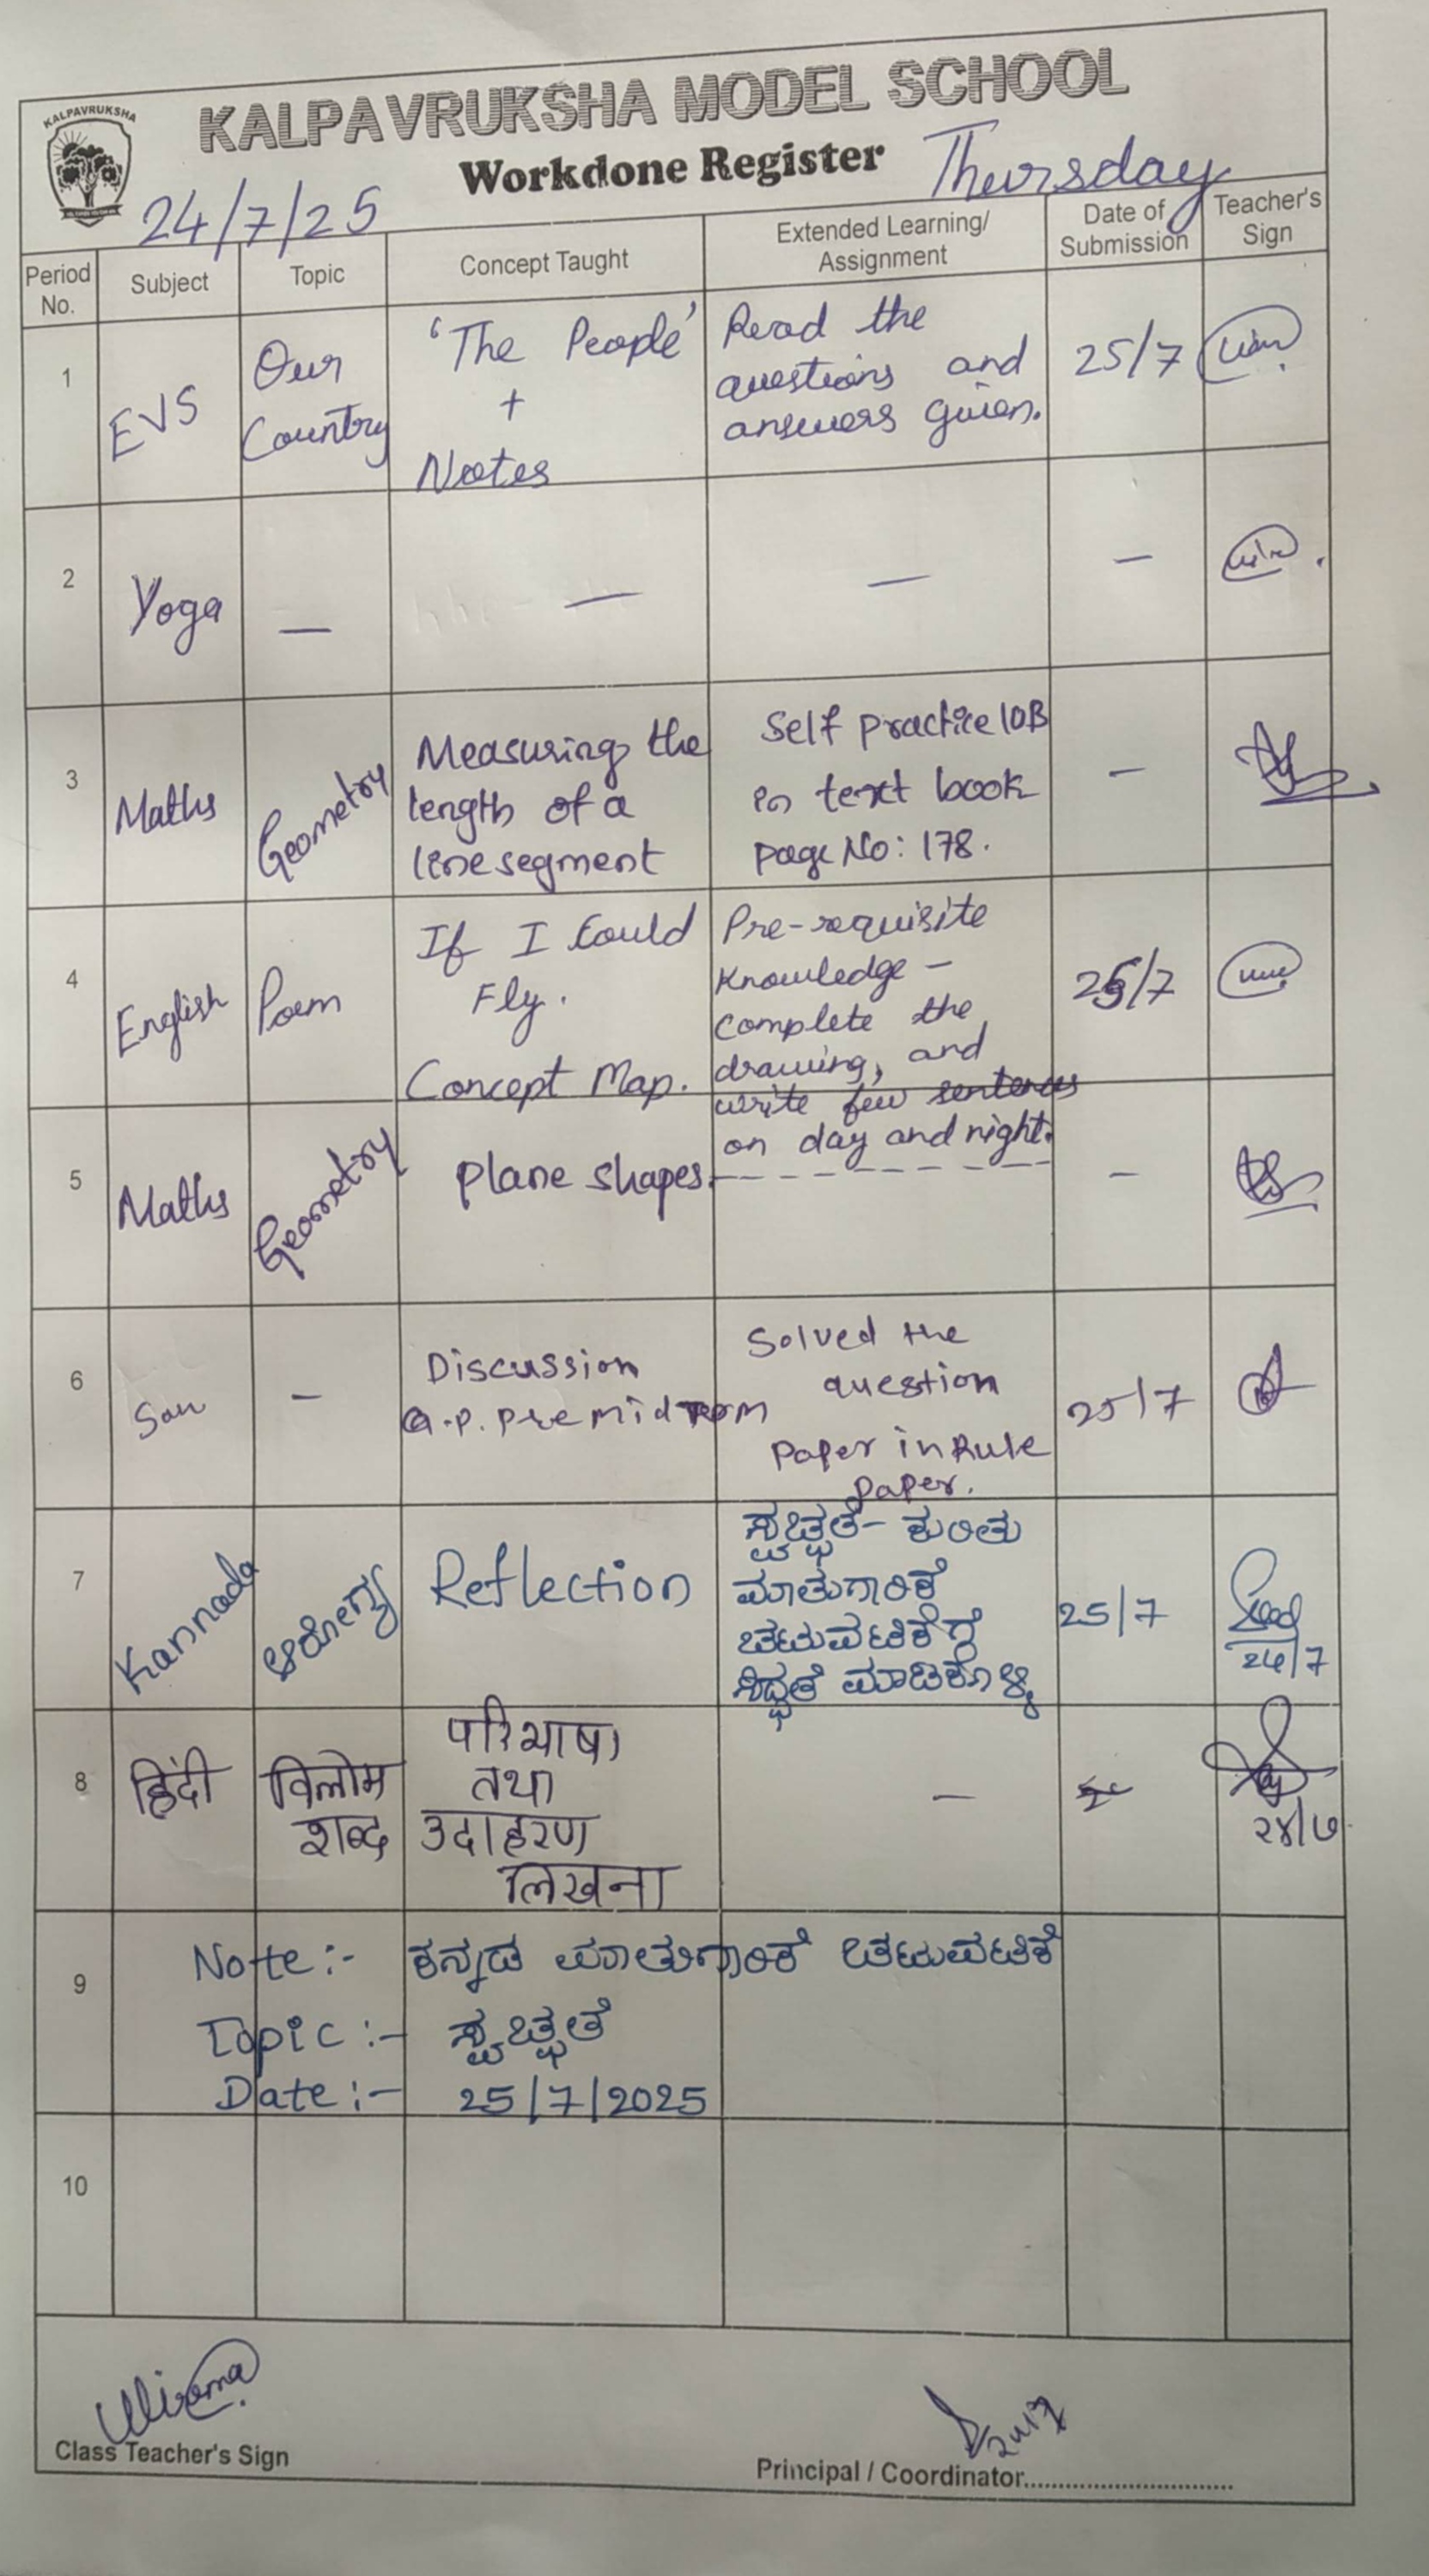 KALPAVRUKSHA
KALPAVRUKSHA MODEL SCHOOL
Workdone Register
Thursday
24/7/25
Period No.
Subject
Topic
Concept Taught
Extended Learning/
Assignment
Date of
Submission
Teacher's
Sign
1
EVS
Our
Country
'The People'
+
Notes
Read the
questions and
answers given.
25/7
2
Yoga
—
—
—
—
3
Maths
Geometry
Measuring the
length of a
line segment
Self practice 10B
in text book
page No: 178.
—
4
English
Poem
If I Could
Fly.
Concept Map.
Pre-requisite
Knowledge –
complete the
drawing, and
write few sentences
on day and night.
25/7
5
Maths
Geometry
plane shapes.
–
6
San
–
Discussion
Q.p. pre midterm
Solved the
question
Paper in Rule
Paper.
25/7
7
Kannada
ಆರೋಗ್ಯ
Reflection
ಸ್ವಚ್ಛತೆ- ಕುರಿತು
ಮಾತುಗಾರಿಕೆ
ಚಟುವಟಿಕೆಗೆ
ಸಿದ್ಧತೆ ಮಾಡಿಕೊಳ್ಳಿ
25/7
24/7
8
हिंदी
विलोम
शब्द
परिभाषा
तथा
उदाहरण
लिखना
—
२४/७
9
Note :- ಕನ್ನಡ ಮಾತುಗಾರಿಕೆ ಚಟುವಟಿಕೆ
Topic :- ಸ್ವಚ್ಛತೆ
Date :- 25/7/2025
10
Class Teacher's Sign
Principal / Coordinator..............................